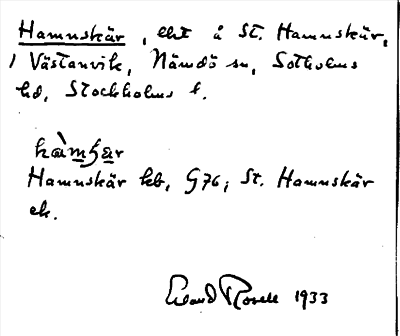 Hamnskär, eht å St. Hamnskär,
i Västanvik, Nämdö sn, Sotholms
hd, Stockholms l.
Hamnskär hb, G76; St. Hamnskär
ek.
Erland Rosell 1933